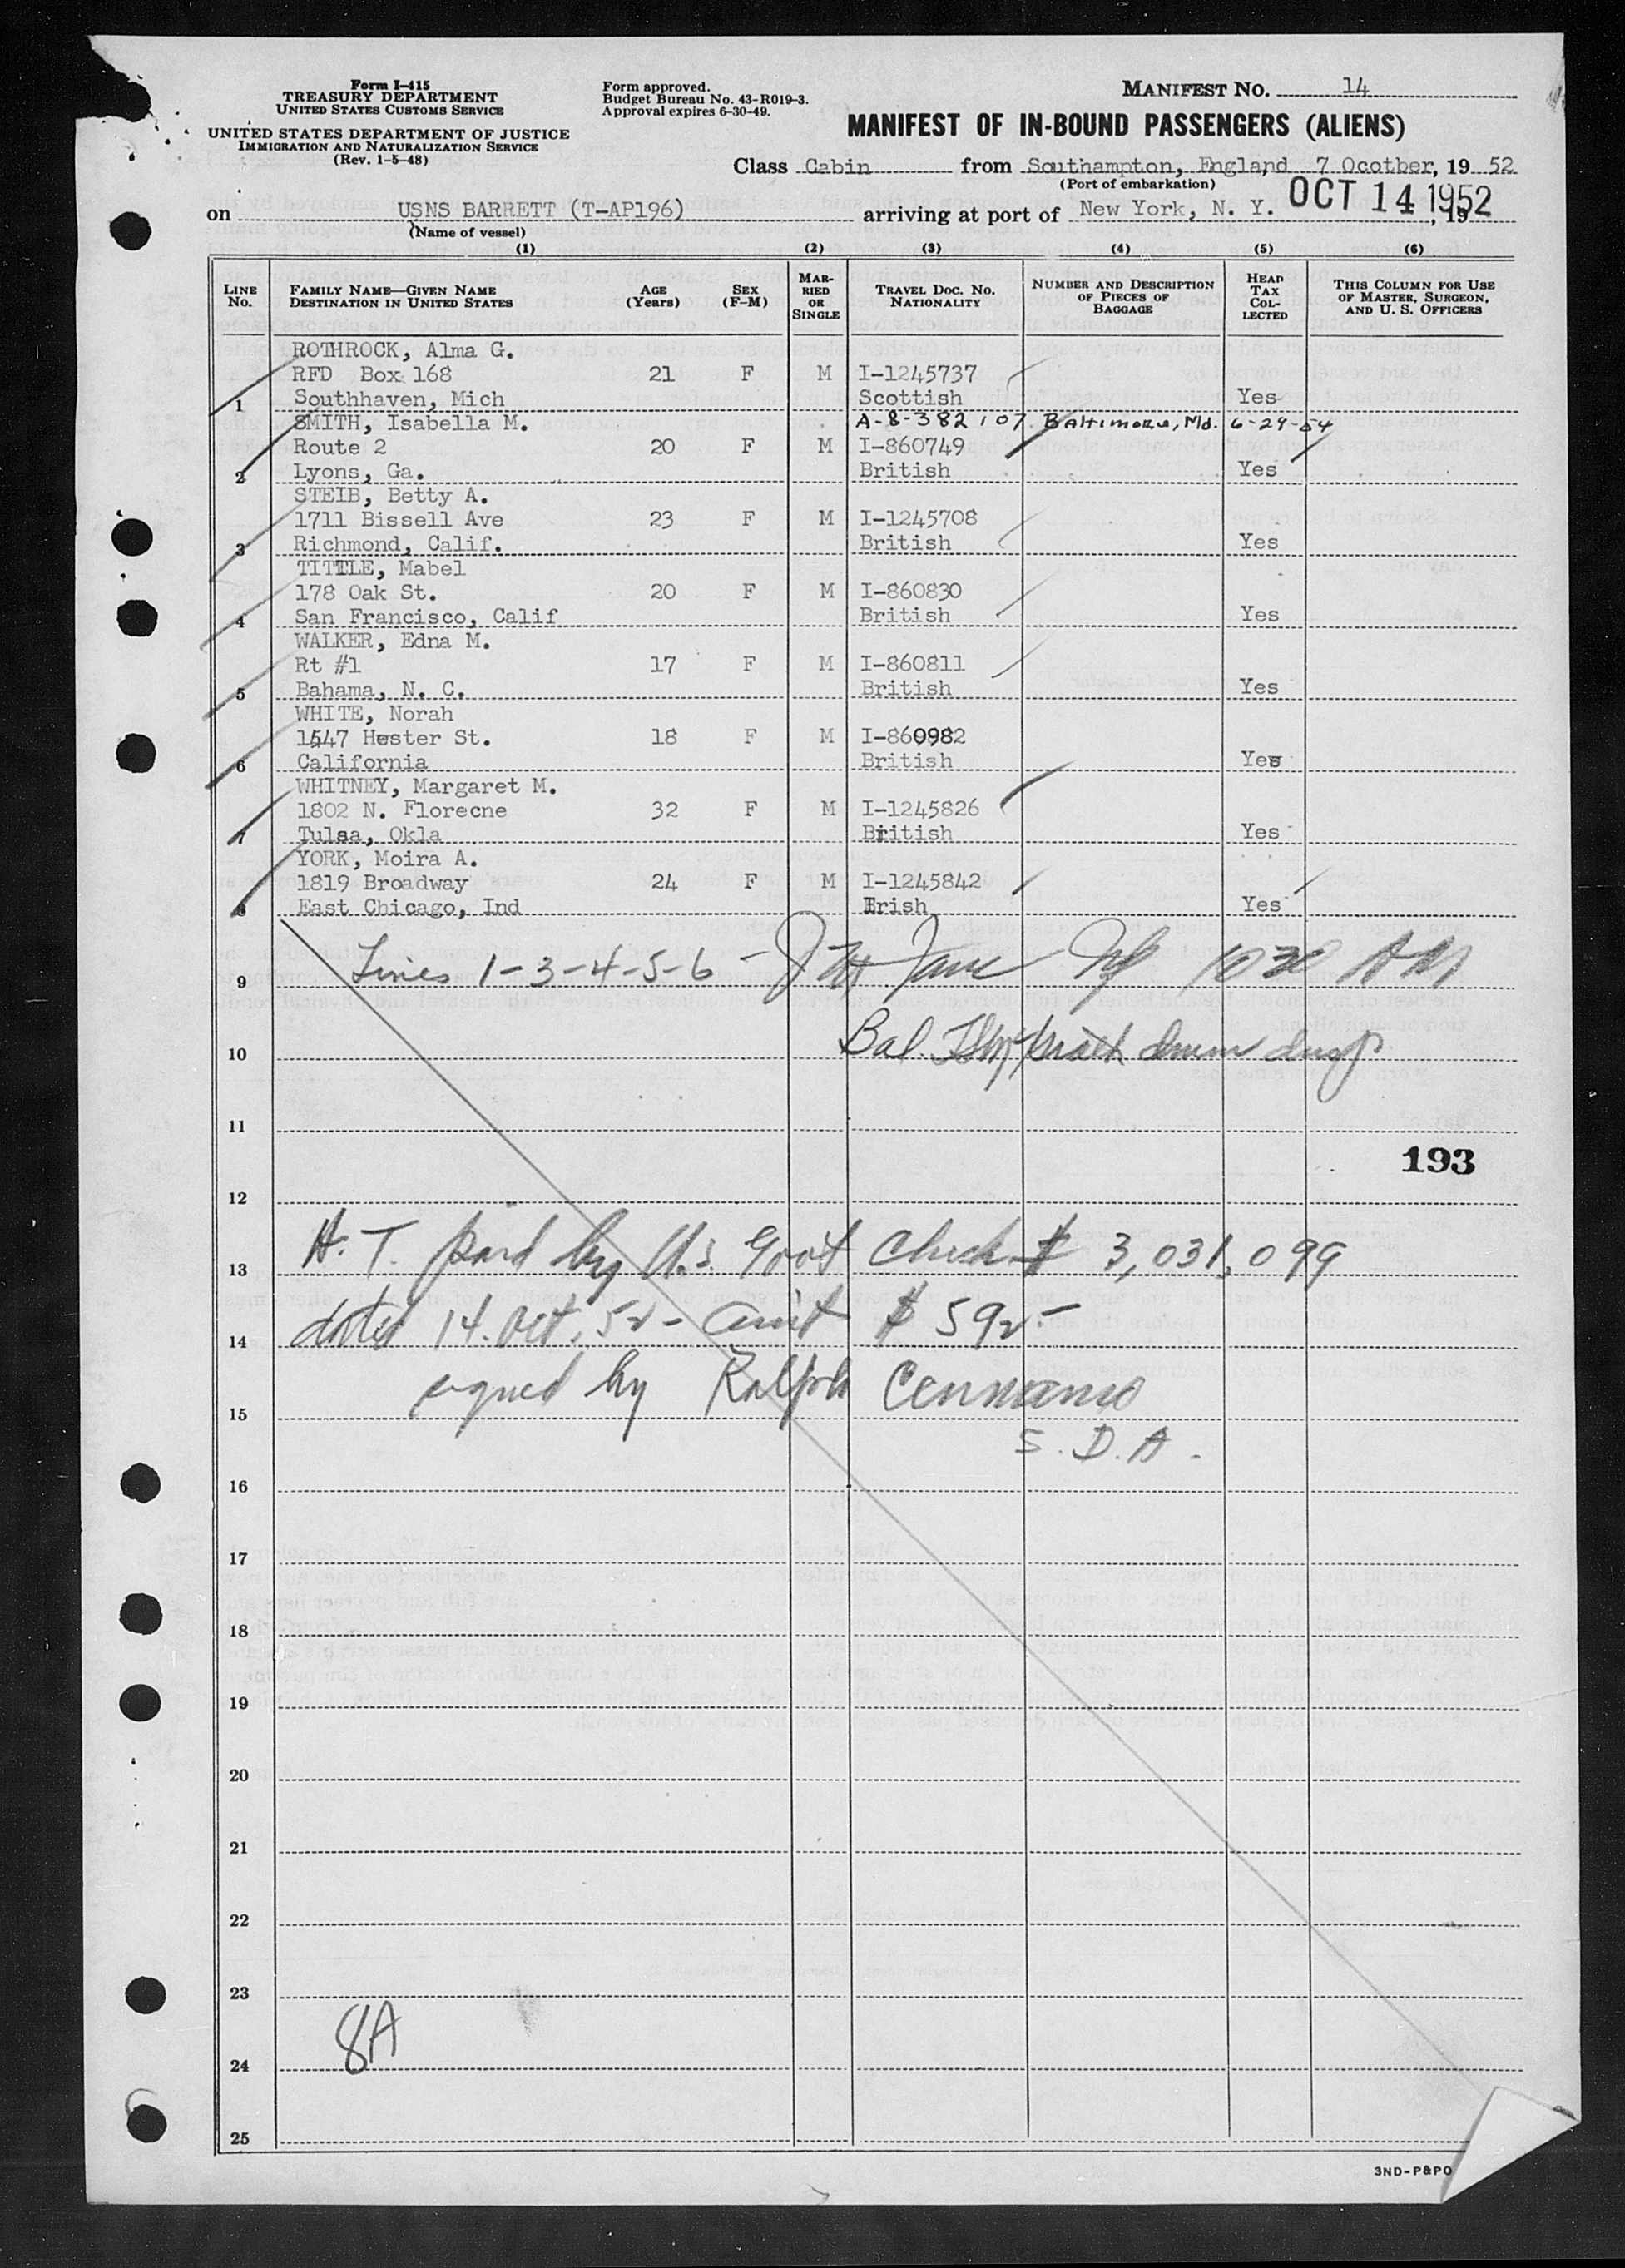 Form I-415
TREASURY DEPARTMENT
UNITED STATES CUSTOMS SERVICE
UNITED STATES DEPARTMENT OF JUSTICE
IMMIGRATION AND NATURALIZATION SERVICE
(Rev. 1-5-48)
Form approved.
Budget Bureau No. 43-R019-3.
Approval expires 6-30-49.
MANIFEST NO. 14
MANIFEST OF IN-BOUND PASSENGERS (ALIENS)
Class Cabin from Southampton, England 7 Ocotber, 19 52
(Port of embarkation)
on USNS BARRETT (T-AP196) arriving at port of New York, N. Y. OCT 14 1952, 19
(Name of vessel)
(1) (2) (3) (4) (5) (6)
LINE No. FAMILY NAME—GIVEN NAME DESTINATION IN UNITED STATES AGE (Years) SEX (F-M) MARRIED OR SINGLE TRAVEL DOC. NO. NATIONALITY NUMBER AND DESCRIPTION OF PIECES OF BAGGAGE HEAD TAX COLLECTED THIS COLUMN FOR USE OF MASTER, SURGEON, AND U. S. OFFICERS
ROTHROCK, Alma G.
RFD Box 168 21 F M I-1245737
1 Southhaven, Mich Scottish Yes
SMITH, Isabella M. A-8-382 107 Baltimore, Md. 6-29-54
Route 2 20 F M I-860749
2 Lyons, Ga. British Yes
STEIB, Betty A.
1711 Bissell Ave 23 F M I-1245708
3 Richmond, Calif. British Yes
TITTLE, Mabel
178 Oak St. 20 F M I-860830
4 San Francisco, Calif British Yes
WALKER, Edna M.
Rt #1 17 F M I-860811
5 Bahama, N. C. British Yes
WHITE, Norah
1547 Hester St. 18 F M I-860982
6 California British Yes
WHITNEY, Margaret M.
1802 N. Florecne 32 F M I-1245826
7 Tulsa, Okla British Yes
YORK, Moira A.
1819 Broadway 24 F M I-1245842
8 East Chicago, Ind Irish Yes
9 Lines 1-3-4-5-6 - 1030 AM
10 Bal.
11
193
12
13 H.T. paid by U.S. Govt Check # 3,031,099
14 dated 14. Oct. 52 - amt $ 592-
15 signed by Ralph
S. D. A.
16
17
18
19
20
21
22
23
8A
24
25
3ND-P&PO